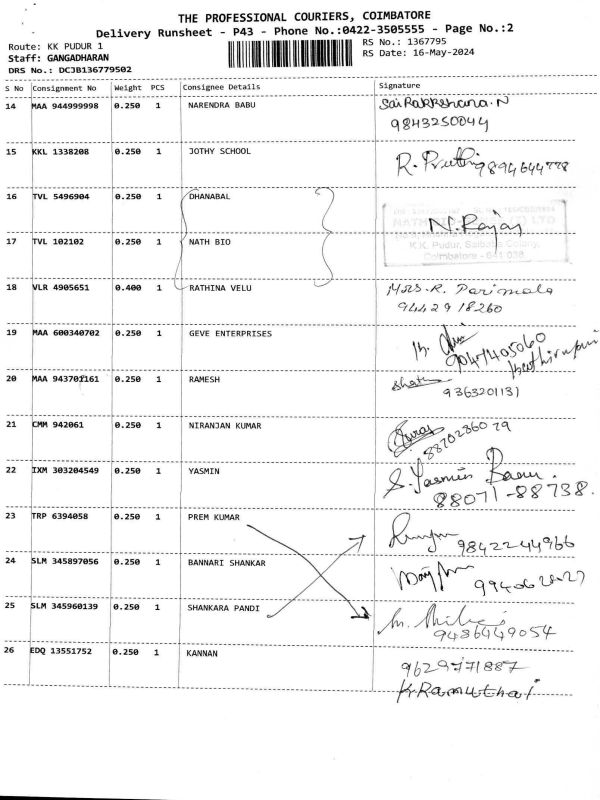 THE PROFESSIONAL COURIERS, COIMBATORE
Delivery Runsheet - P43 - Phone No.:0422-3505555 - Page No.:2
Route: KK PUDUR 1
RS No.: 1367795
Staff: GANGADHARAN
RS Date: 16-May-2024
DRS No.: DCJB136779502
S No Consignment No Weight PCS Consignee Details Signature
14 MAA 944999998 0.250 1 NARENDRA BABU SaiRakkshana.N
9843250044
15 KKL 1338208 0.250 1 JOTHY SCHOOL R. 9894644778
16 TVL 5496904 0.250 1 DHANABAL
N.Rajaj
17 TVL 102102 0.250 1 NATH BIO
K.K. Pudur, Saibaba Colony,
Coimbatore - 641 038
18 VLR 4905651 0.400 1 RATHINA VELU Mrs. R. Parimala
9442918260
19 MAA 600340702 0.250 1 GEVE ENTERPRISES
9047405060
20 MAA 943702161 0.250 1 RAMESH
9363201131
21 CMM 942061 0.250 1 NIRANJAN KUMAR
8870286079
22 IXM 303204549 0.250 1 YASMIN S. Yasmin Banu.
88071-88738.
23 TRP 6394058 0.250 1 PREM KUMAR
9842244966
24 SLM 345897056 0.250 1 BANNARI SHANKAR
25 SLM 345960139 0.250 1 SHANKARA PANDI
9486449054
26 EDQ 13551752 0.250 1 KANNAN
9629771887
K.Ramuthai